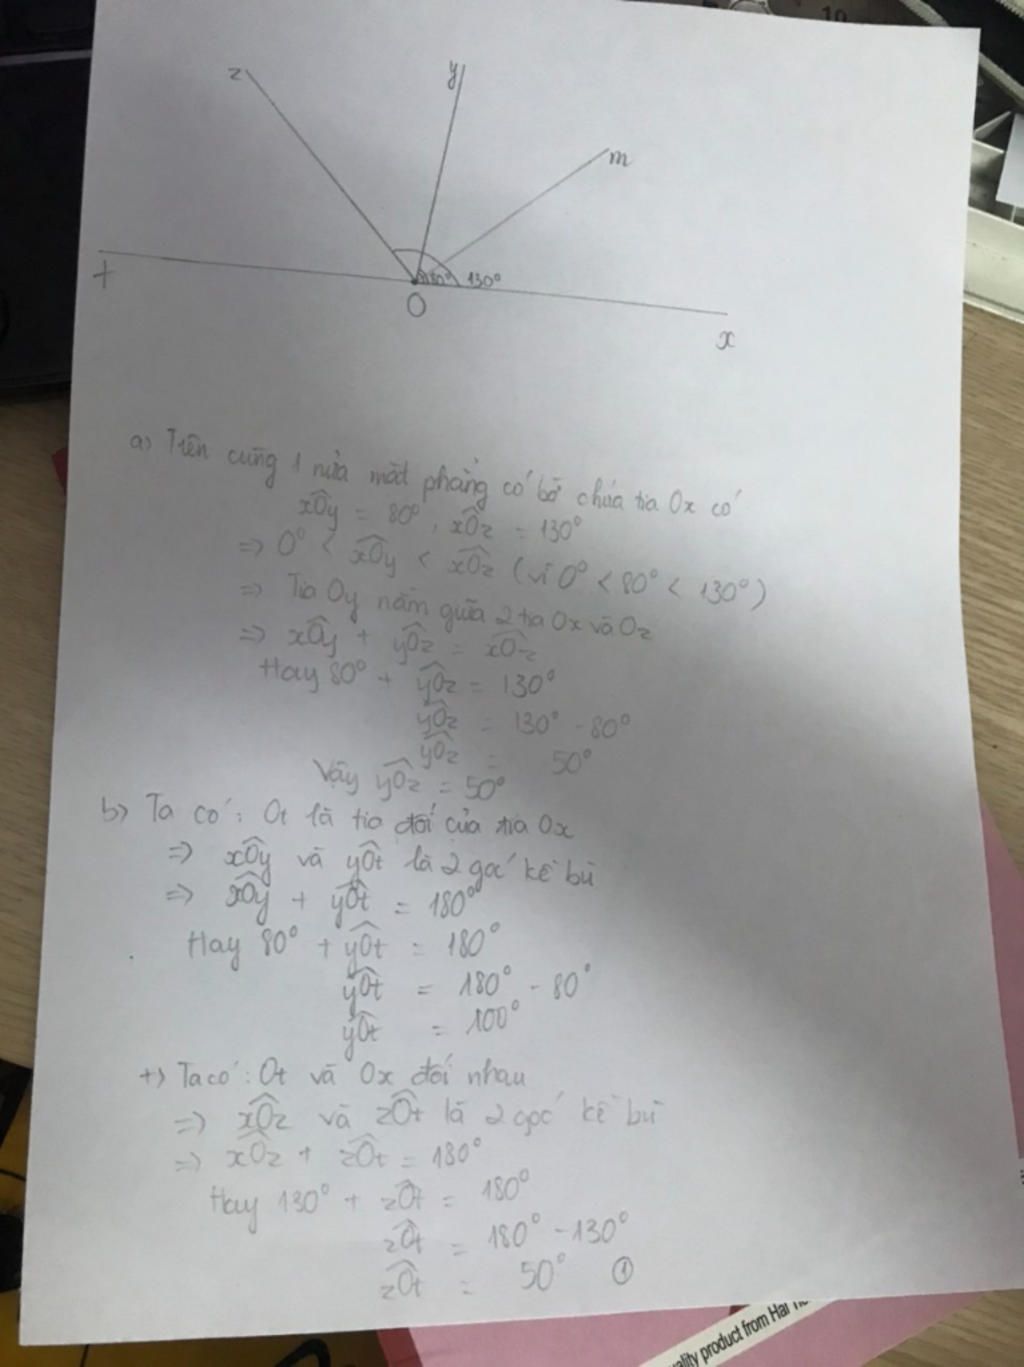 z
y
m
t
80°
130°
O
x
a) Trên cùng 1 nửa mặt phẳng có bờ chứa tia Ox có
xÔy = 80°, xÔz = 130°
=> 0° < xÔy < xÔz (vì 0° < 80° < 130°)
=> Tia Oy nằm giữa 2 tia Ox và Oz
=> xÔy + yÔz = xÔz
Hay 80° + yÔz = 130°
yÔz = 130° - 80°
yÔz = 50°
Vậy yÔz = 50°
b) Ta có: Ot là tia đối của tia Ox
=> xÔy và yÔt là 2 góc kề bù
=> xÔy + yÔt = 180°
Hay 80° + yÔt = 180°
yÔt = 180° - 80°
yÔt = 100°
+) Ta có: Ot và Ox đối nhau
=> xÔz và zÔt là 2 góc kề bù
=> xÔz + zÔt = 180°
Hay 130° + zÔt = 180°
zÔt = 180° - 130°
zÔt = 50° ①
product from